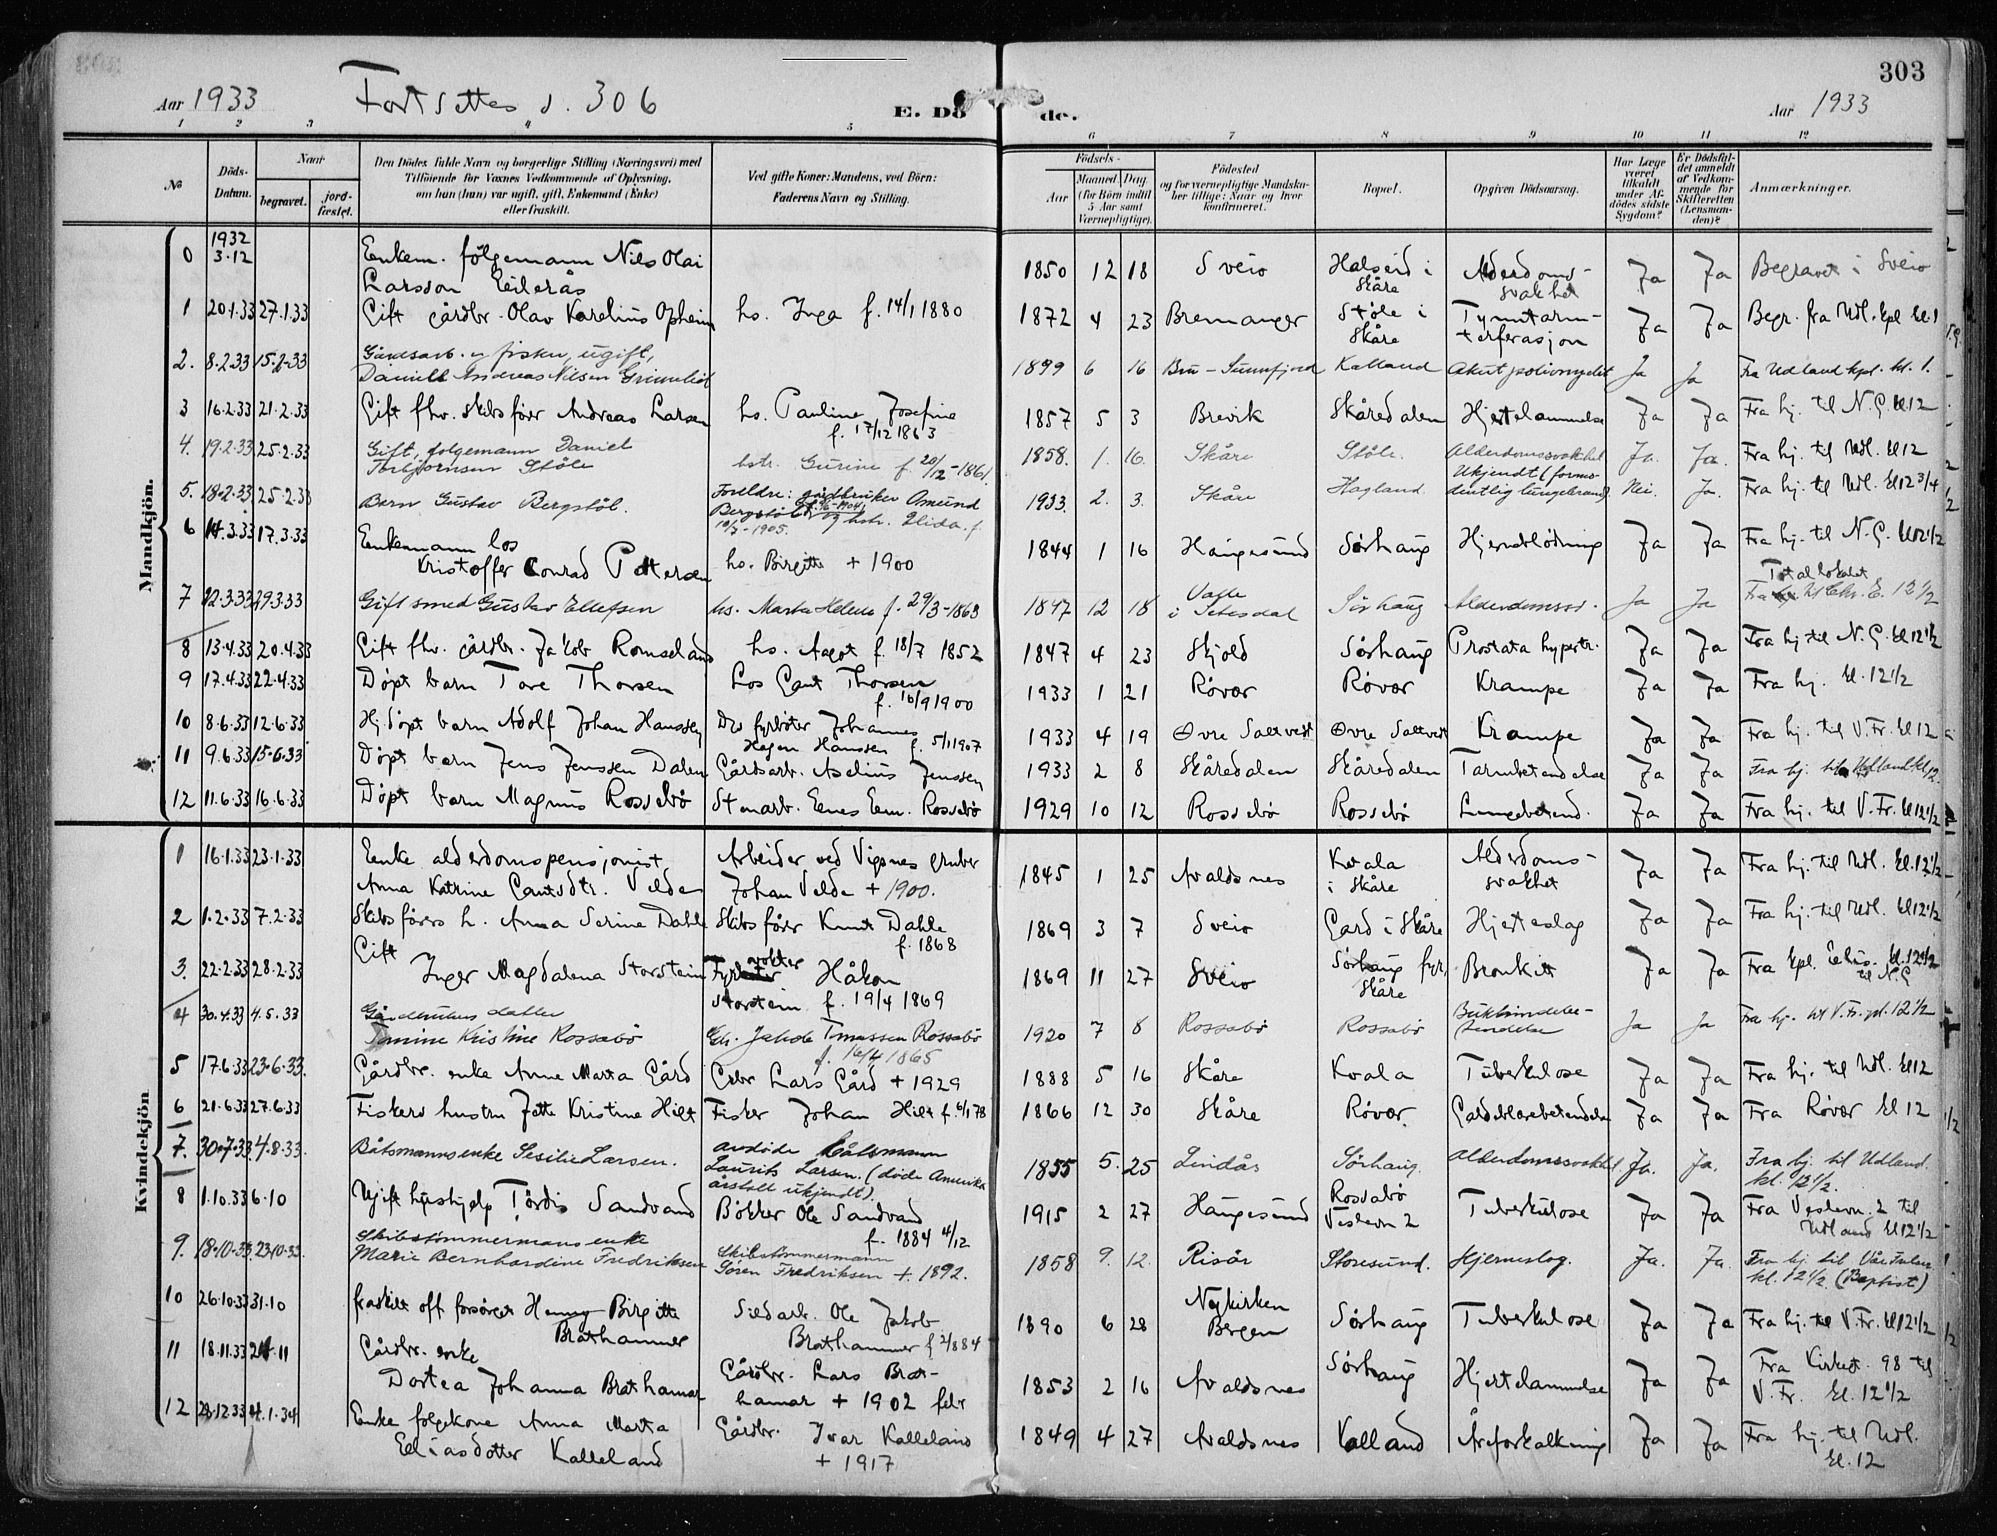 303
Aar 1933 Fortsettes s. 306 E. Dö de. Aar 1933
1 2 3 4 5 6 7 8 9 10 11 12
No Döds-Datum. Naar begravet. jord-fæstet. Den Dödes fulde Navn og borgerlige Stilling (Næringsvei) med Tilföiende for Voxnes Vedkommende af Oplysning, om han (hun) var ugift, gift, Enkemand (Enke) eller fraskilt. Ved gifte Koner: Mandens, ved Börn: Faderens Navn og Stilling. Födsels- Aar Maaned Dag (for Börn indtil 5 Aar samt Værnepligtige). Födested og for værnepligtige Mandskaber tillige: Naar og hvor konfirmeret. Bopæl. Opgiven Dödsaarsag. Har Læge været tilkaldt under Afdödes sidste Sygdom? Er Dödsfaldet anmeldt af Vedkommende for Skifteretten (Lensmanden)? Anmærkninger.
Mandkjön.
0 1932 3.12 Enkem. fölgemann Nils Olai Larsson Eilerås 1850 12 18 Sveio Halseid i Skåre Alderdoms-svakhet Ja Ja Begravet i Sveio
1 20.1.33 27.1.33 Gift gårdbr. Olav Karelius Opheim hs. Inga f. 14/1 1880 1872 4 23 Bremanger Stöle i Skåre Ja Ja Begr. fra Udl. kpl kl. 1
2. 8.2.33 15.2.33 Gårdsarb. og fisker, ugift, Daniell Andreas Nilsen Grimelid 1899 6 16 Bru - Sunnfjord Kalland Akut poliomyelit Ja Ja Fra Udland kpl. kl. 1.
3 16.2.33 21.2.33 Gift fhv. skibsförer Andreas Larsen hs. Pauline Josefine f. 17/12 1863 1857 5 3 Brevik Skåredalen Hjertelammelse Ja Ja Fra hj. til N.G. kl 12
4. 19.2.33 25.2.33 Gift, folgemann Daniel Torbjörnsen Stöle hstr. Gurine f. 20/12-1861. 1858. 1. 16. Skåre Stöle. Alderdomssvakhet Ja. Ja. Fra hj. til Udl. kl 12
5. 18.2.33 25.2.33 Barn Gustav Bergstöl. Foreldre: gårdbruker Omund Bergstöl og hstr. Elida. f. 10/7-1905. 1933. 2. 3. Skåre Hagland. Ukjendt (formodentlig lungebrand). Nei. Ja. Fra hj. til Udl. kl 12 3/4
6 14.3.33 17.3.33 Enkemann los Kristoffer Conrad Pettersen hs. Birgitte + 1900 1844 1 16 Haugesund Sørhaug Hjerneblödning Ja Ja Fra hj. til N.G. kl 12 1/2
7 22.3.33 29.3.33 Gift smed Gustav Ellefsen hs. Marta Helene f. 29/3-1863 1847 12 18 Valle i Setesdal Sörhaug Alderdomssv. Ja Ja Totallokalet Fra hj til Chr. E. 12 1/2
8 13.4.33 20.4.33 Gift fhv. gårdbr. Jakob Romseland hs. Aagot f. 18/7 1852 1847 4 23 Skjold Sørhaug Prostata hypertr. Ja Ja Fra hj til N.G. kl 12 1/2
9 17.4.33 22.4.33 Døpt barn Tore Thorsen Los Gaut Thorsen f. 10/9 1900 1933 1 21 Røvær Røvær Krampe Ja Ja Fra hj. kl. 12 1/2
10 8.6.33 12.6.33 Hj.døpt barn Adolf Johan Hanssen Dvs fyrbøter Johannes Hagen Hanssen f. 5/1 1907 1933 4 19 Øvre Saltveit Øvre Saltveit Krampe Ja Ja Fra hj. til V.Fr. kl 12
11 9.6.33 15.6.33 Døpt barn Jens Jenssen Dalen Gårdsarb. Aselius Jenssen 1933 2 8 Skåredalen Skåredalen Tarmbetendelse Ja Ja Fra hj. til Udland kl 12.
12 11.6.33 16.6.33 Døpt barn Magnus Rossebö Stenarb. Enes Een. Rossebö 1929 10 12 Rossebö Rossebö Lungebetend. Ja Ja Fra hj. til V.Fr. kl 12 1/2
Kvindekjön
1 16.1.33 23.1.33 Enke alderdomspensjonist Anna Katrine Gautsdtr. Velde Arbeider ved Vigsnes gruber Johan Velde + 1900. 1845 1 25 Avaldsnes Kvala i Skåre Alderdoms-svakhet Ja Ja Fra hj. til Udl. kl. 12 1/2
2 1.2.33 7.2.33 Skibsförers h. Anna Serine Dahle Skibsförer Knut Dahle f. 1868 1869 3 7 Sveio Gard i Skåre Hjerteslag Ja Ja Fra hj. til Udl. kl 12 1/2
3. 22.2.33 28.2.33 Gift Inger Magdalena Storstein Fyrvokter Håkon Storstein f. 19/4 1869 1869 11 27 Sveio Sørhaug fyr, Skåre Bronkitt Ja Ja Fra kpl. Elis. kl. 12 1/2 til N.G
4 30.4.33 4.5.33 Gårdeiers datter Tomine Kristine Rossabö Gbr. Jakob Tmassen Rossabö f. 16/4 1865 1920 7 8 Rossabö Rossabö Bukhindebetendelse Ja Ja Fra hj. til V.Fr.pl. 12 1/2
5 17.6.33 23.6.33. Gårdbr. enke Anne Marta Gård Grbr Lars Gård + 1929 1888 5 16 Skåre Kvala Tuberkulose Ja Ja Fra hj. til Udl. kl 12
6 21.6.33 27.6.33 Fiskers hustru Jette Kristine Hilt Fisker Johan Hilt f. 6/1 78 1866 12 30 Skåre Røvær. Galdeblærebetendelse Ja Ja Fra Røvær kl 12
7. 30.7.33. 4.8.33. Båtsmannsenke Sesilie Larsen. Avdöde båtsmann Laurits Larsen. (döde Amerika årstall ukjendt). 1855 5. 25 Lindås Sörhaug. Alderdomssvakhet Ja. Ja. Fra hj. til Udland. kl. 12 1/2.
8 1.10.33 6.10 Ugift hushjelp Tordis Sandvand Bökker Ole Sandvand f. 1884 4/12 1915 2 27 Haugesund Rossabö Vestevn 2 Tuberkulose Ja Ja Fra Vestevn. 2 til Udland kl 12 1/2
9. 18.10.33. 23.10.33. Skibstömmermans enke Marie Bernhardine Fredriksen Skibstömmermann Sören Fredriksen +. 1892. 1858 9. 12. Risör Storesund. Hjerneslag. Ja. Ja. Fra hj. til Vår Frelser kl. 12 1/2 (Baptist)
10 26.10.33 31.10 fraskilt off. forsörget Henny Birgitte Brathammer Sildarb. Ole Jakob Brathammer 1890 6 28 Nykirken Bergen Sørhaug Tuberkulose Ja Ja Fra hj. til V.Fr. kl 12 1/2
11 18.11.33 24.11 Gårdbr. enke Dortea Johanna Brathamar Gårdbr. Lars Brat-hamar + 1902 febr 1853 2 16 Avaldsnes Sørhaug Hjertelammelse Ja Ja Fra Kirkegt. 98 til V.Fr. kl. 12 1/2
12 28.12.33 4.1.34 Enke folgekone Anna Marta Eliasdotter Kalleland Gårdbr. Ivar Kalleland + 1917 1849 4 27 Avaldsnes Kalland Åreforkalkning Ja Ja Fra hj. til Udl. kl. 12